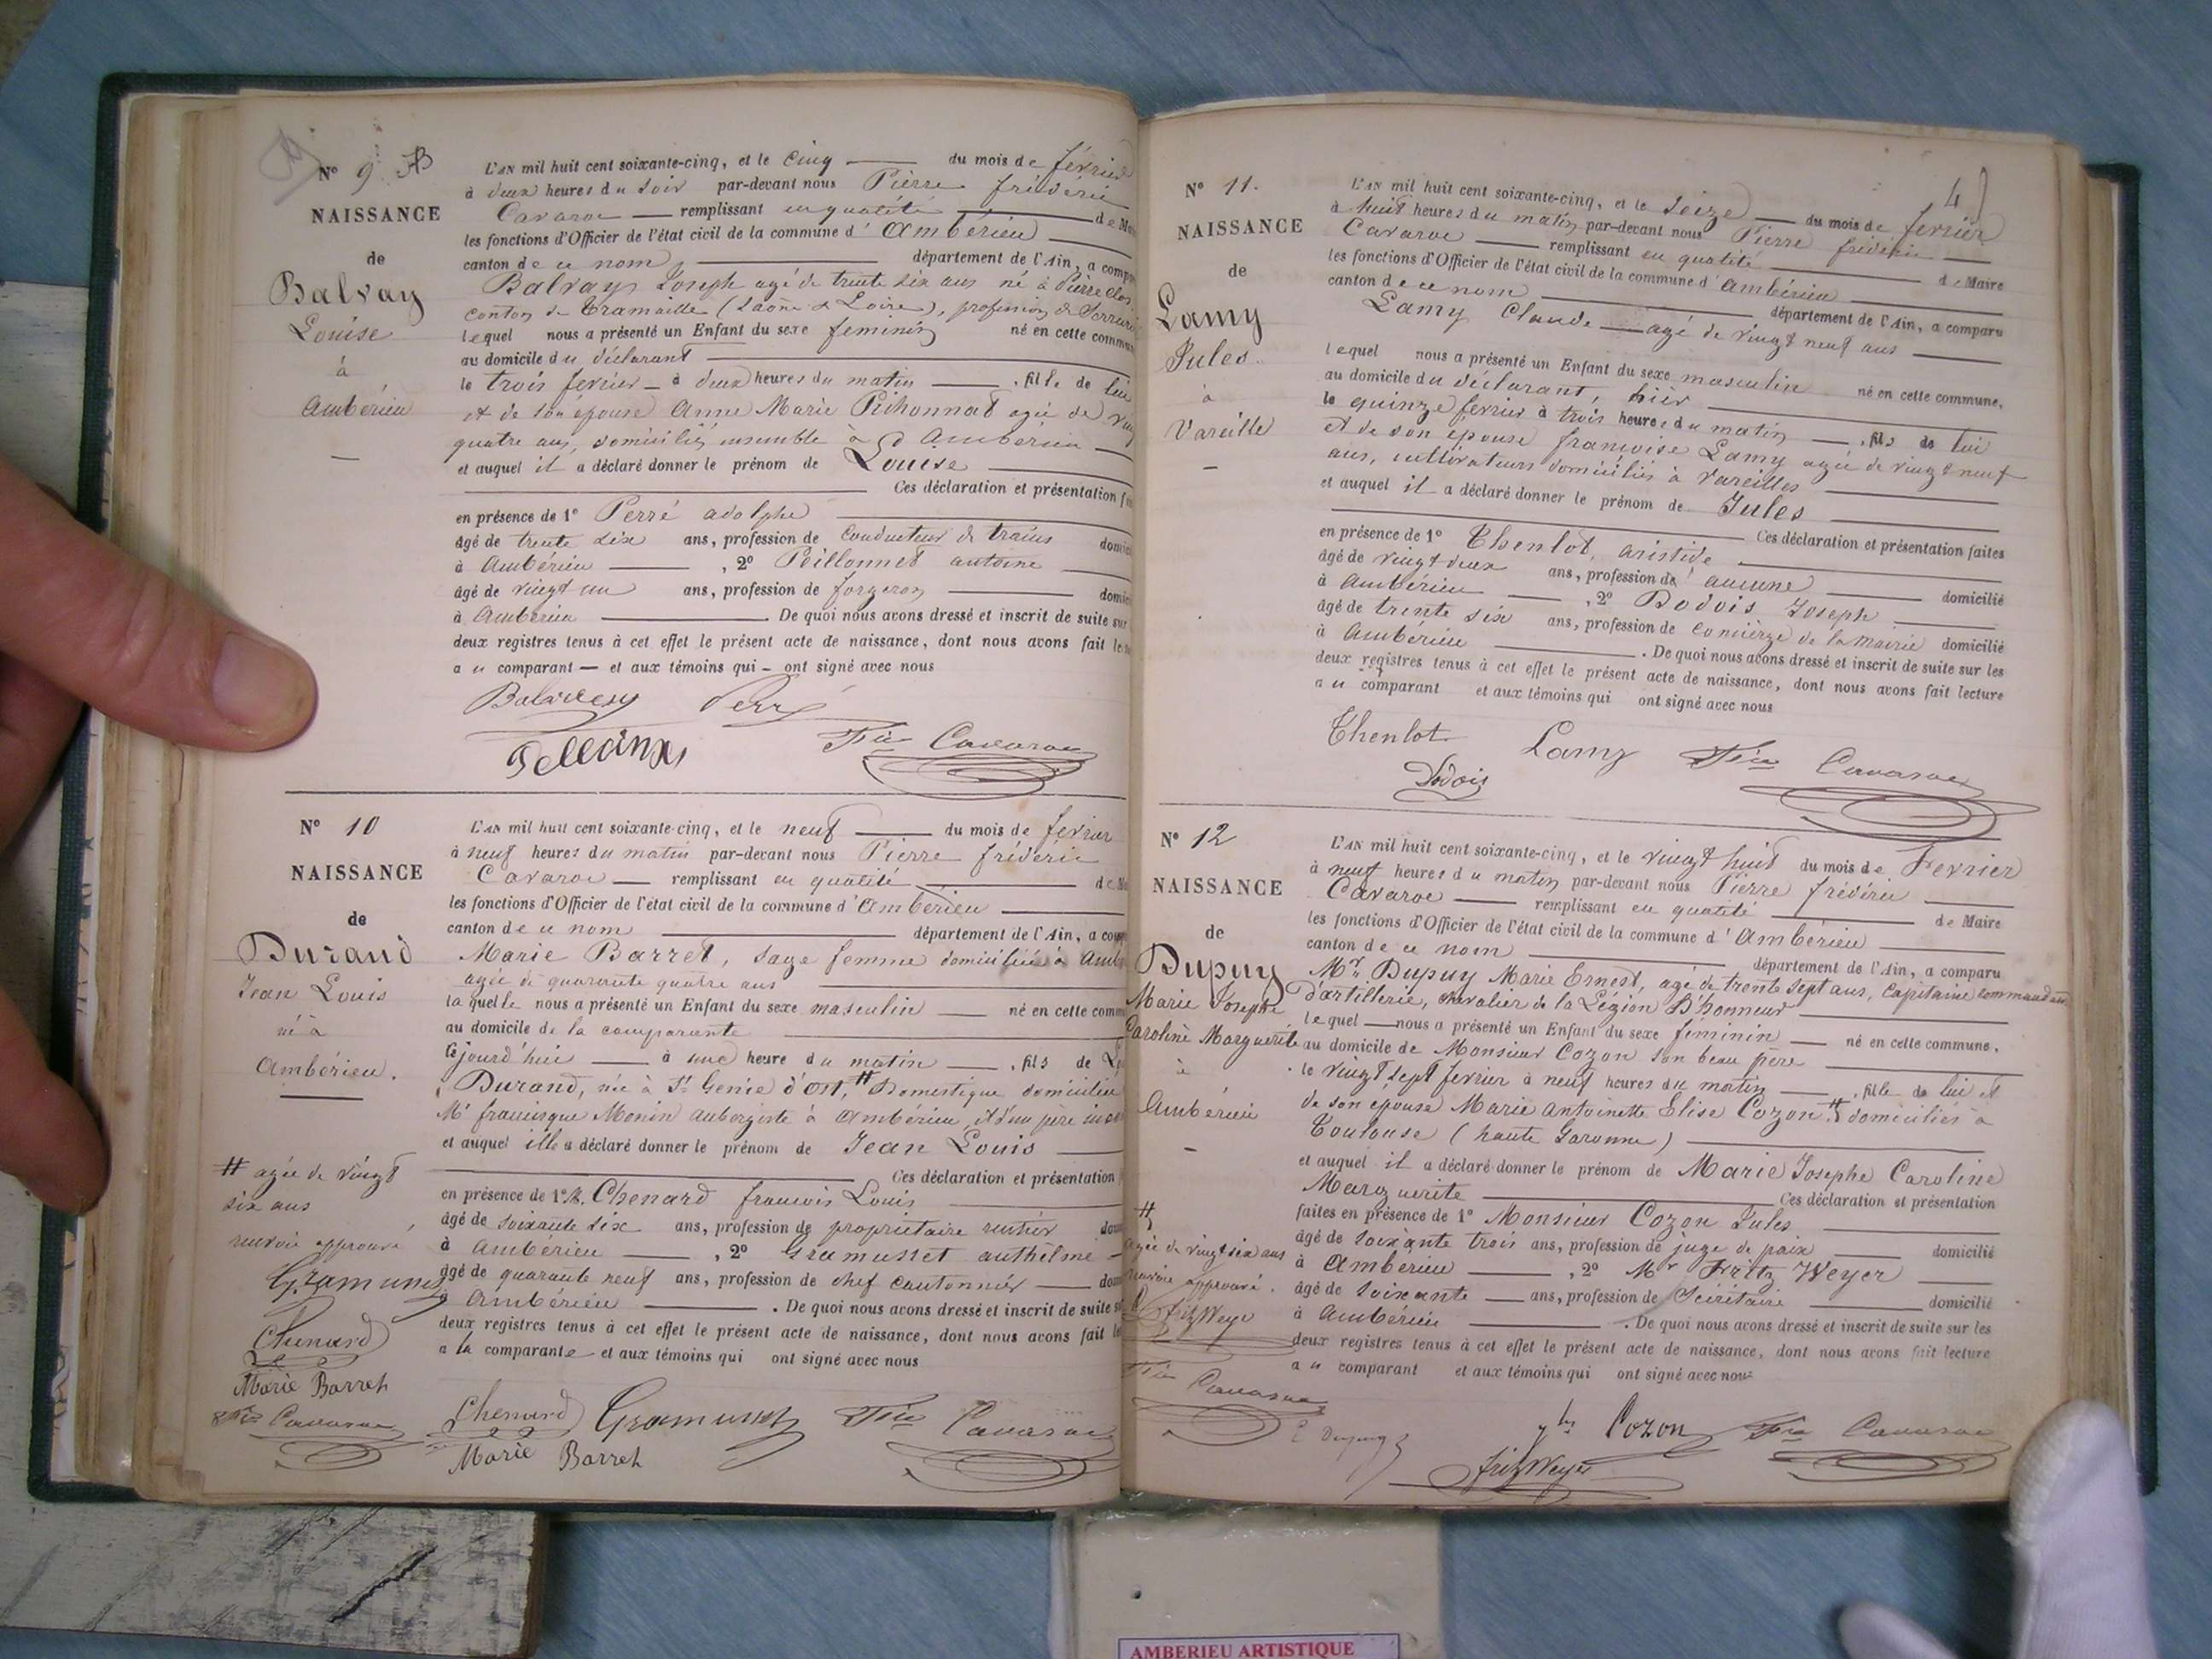 N° 9.
NAISSANCE
de
Balvay
Louise
à
Ambérieu
L'AN mil huit cent soixante-cinq, et le Cinq du mois de février
à deux heures du soir par-devant nous Pierre frédéric
Cavaroc remplissant en qualité de
les fonctions d'Officier de l'état civil de la commune d'Ambérieu
canton de ce nom, département de l'Ain, a
Balvay Joseph agé de trente six ans né à Pierreclos
canton de Tramaille (Saône & Loire), profession de
lequel nous a présenté un Enfant du sexe feminin né en cette
au domicile du déclarant
le trois fevrier à deux heures du matin, fille de lui
et de son épouse Anne Marie agée de
quatre ans, domiciliés ensemble à Ambérieu
et auquel il a déclaré donner le prénom de Louise
Ces déclaration et présentation
en présence de 1° Perré adolphe
âgé de trente six ans, profession de Conducteur de trains
à Ambérieu, 2° Peillonnet antoine
âgé de vingt un ans, profession de forgeron
à Ambérieu. De quoi nous avons dressé et inscrit de suite sur
deux registres tenus à cet effet le présent acte de naissance, dont nous avons fait
au comparant et aux témoins qui ont signé avec nous
Cavaroc
N° 10
NAISSANCE
de
Durand
Jean Louis
né à
Ambérieu.
# agée de vingt
six ans
renvoi approuvé
Gramusset
Chenard
Marie Barret
Cavaroc
L'AN mil huit cent soixante-cinq, et le neuf du mois de fevrier
à neuf heures du matin par-devant nous Pierre frédéric
Cavaroc remplissant en qualité de
les fonctions d'Officier de l'état civil de la commune d'Ambérieu
canton de ce nom département de l'Ain, a
Marie Barret, sage femme domiciliée à
agée de quarante quatre ans
laquelle nous a présenté un Enfant du sexe masculin né en cette
au domicile de la comparante
cejourd'hui à une heure du matin, fils de
Durand, née à St Genie d'# Domestique domiciliée
Mr francisque Monin aubergiste à Ambérieu, et d'un père
et auquel elle a déclaré donner le prénom de Jean Louis
Ces déclaration et présentation
en présence de 1° M. Chenard francois Louis
âgé de soixante six ans, profession de propriétaire rentier
à Ambérieu, 2° Gramusset anthelme
âgé de quarante neuf ans, profession de chef cantonnier
à Ambérieu. De quoi nous avons dressé et inscrit de suite
deux registres tenus à cet effet le présent acte de naissance, dont nous avons fait
a la comparante et aux témoins qui ont signé avec nous
Chenard Gramusset Cavaroc
Marie Barret
4
N° 11.
NAISSANCE
de
Lamy
Jules
à
Vareille
L'AN mil huit cent soixante-cinq, et le Seize du mois de fevrier
à huit heures du matin par-devant nous Pierre frédéric
Cavaroc remplissant en qualité de Maire
les fonctions d'Officier de l'état civil de la commune d'Ambérieu
canton de ce nom département de l'Ain, a comparu
Lamy Claude agé de vingt neuf ans
lequel nous a présenté un Enfant du sexe masculin né en cette commune,
au domicile du déclarant, hier
le quinze fevrier à trois heures du matin, fils de lui
et de son épouse francoise Lamy agée de vingt neuf
ans, cultivateurs domiciliés à Vareilles
et auquel il a déclaré donner le prénom de Jules
Ces déclaration et présentation faites
en présence de 1° Thenlot, aristide
âgé de vingt deux ans, profession de aucune domicilié
à Ambérieu, 2° Dodois Joseph
âgé de trente six ans, profession de Concièrge de la Mairie domicilié
à Ambérieu. De quoi nous avons dressé et inscrit de suite sur les
deux registres tenus à cet effet le présent acte de naissance, dont nous avons fait lecture
au comparant et aux témoins qui ont signé avec nous
Thenlot Lamy Cavaroc
Dodois
N° 12
NAISSANCE
de
Dupuy
Marie Josephe
Caroline Marguerite
à
Ambérieu
#
agée de vingt six ans
renvoi approuvé.
Fritz Weyer
Cavaroc
L'AN mil huit cent soixante-cinq, et le vingt huit du mois de Fevrier
à neuf heures du matin par-devant nous Pierre frédéric
Cavaroc remplissant en qualité de Maire
les fonctions d'Officier de l'état civil de la commune d'Ambérieu
canton de ce nom département de l'Ain, a comparu
Mr. Dupuy Marie Ernest, agé de trente sept ans, Capitaine commandant
d'artillerie, chevalier de la Légion D'honneur
lequel nous a présenté un Enfant du sexe féminin né en cette commune.
au domicile de Monsieur Cozon son beau père
le vingt sept fevrier à neuf heures du matin, fille de lui et
de son épouse Marie Antoinette Elise Cozon # domiciliés à
Toulouse (haute Garonne)
et auquel il a déclaré donner le prénom de Marie Josephe Caroline
Marguerite Ces déclaration et présentation
faites en présence de 1° Monsieur Cozon Jules
âgé de soixante trois ans, profession de juge de paix domicilié
à Ambérieu, 2° Mr Fritz Weyer
âgé de soixante ans, profession de Secrétaire domicilié
à Ambérieu. De quoi nous avons dressé et inscrit de suite sur les
deux registres tenus à cet effet le présent acte de naissance, dont nous avons fait lecture
au comparant et aux témoins qui ont signé avec nous
E Dupuy Cozon Cavaroc
Fritz Weyer
AMBERIEU ARTISTIQUE